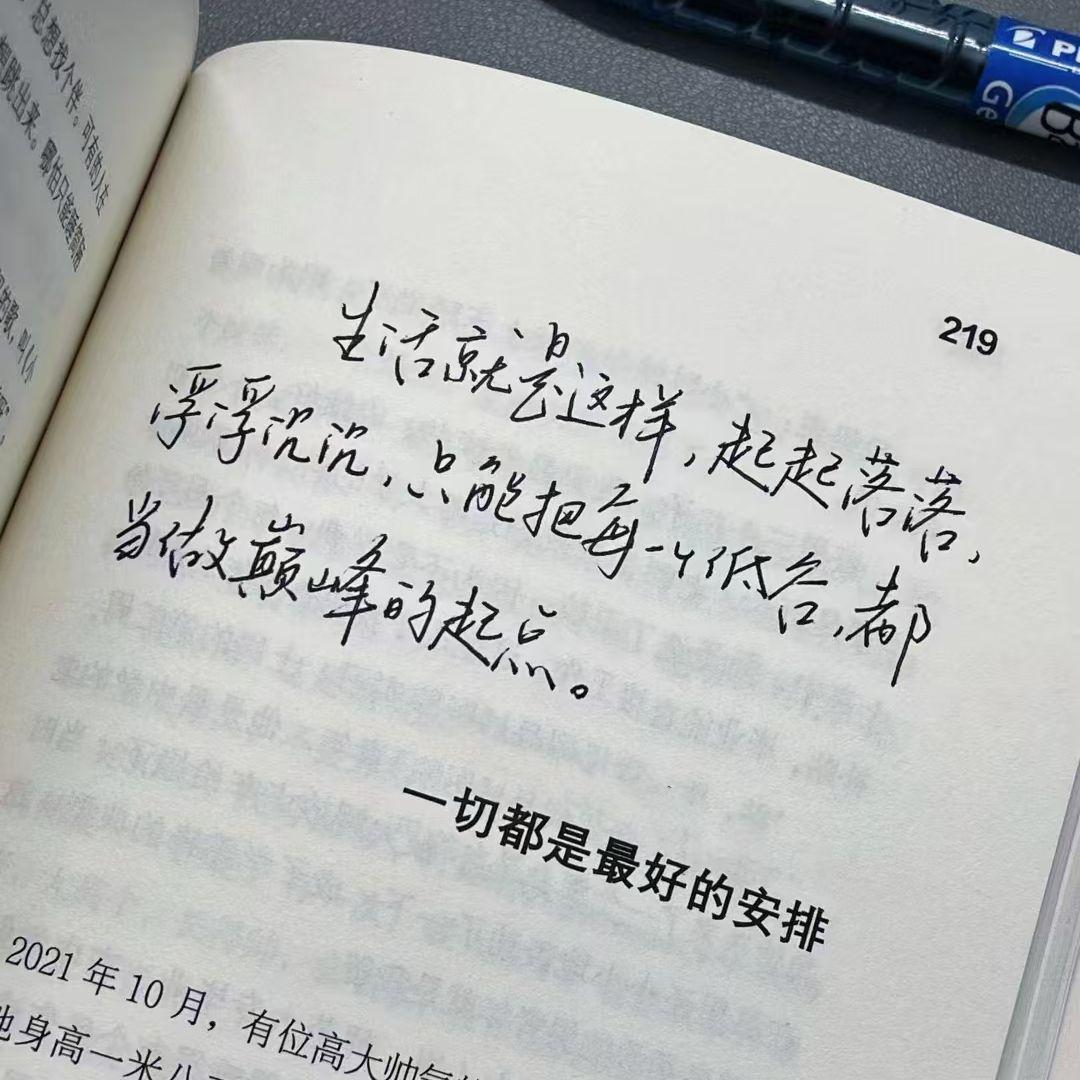 总想找个伴。可有的人在
219
生活就是这样，起起落落，
浮浮沉沉，只能把每一个低谷，都
当做巅峰的起点。
一切都是最好的安排
2021年10月，有位高大帅气的
他身高一米八